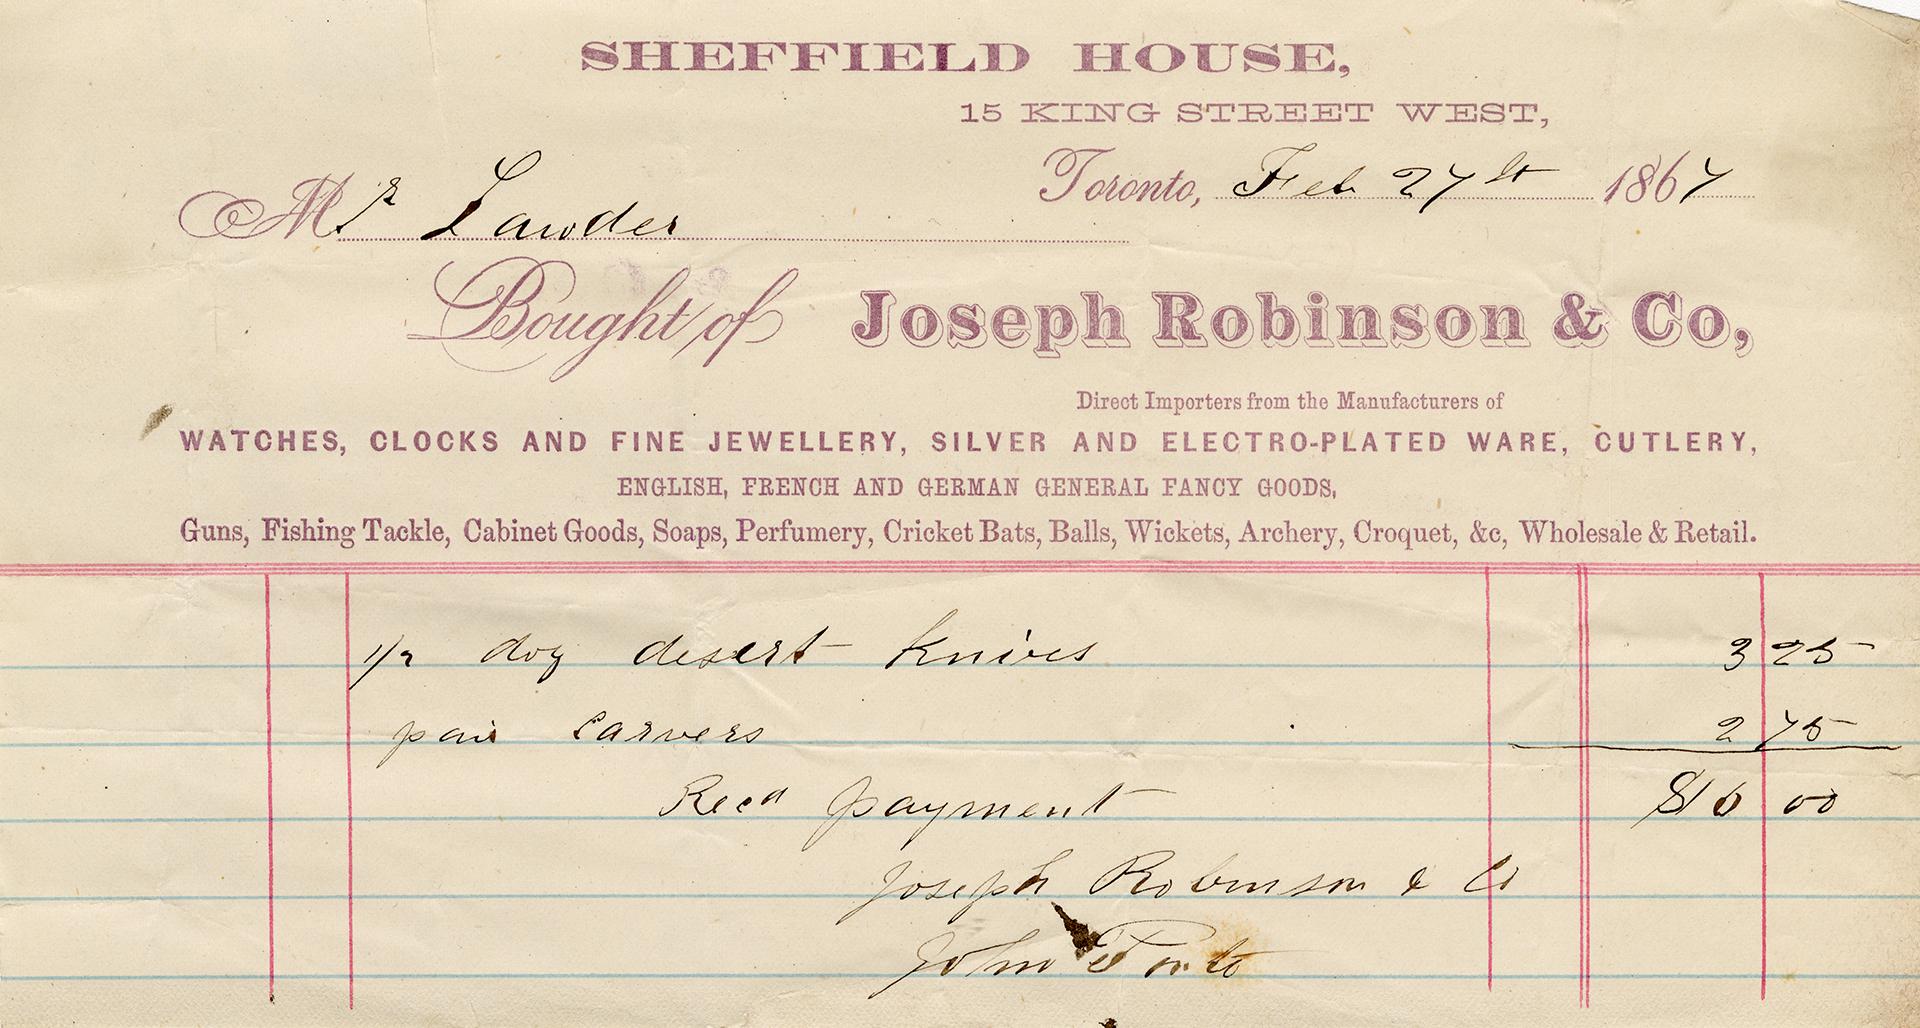 SHEFFIELD HOUSE,
15 KING STREET WEST,
Toronto, Feb 27th 1867
Mr Lawder
Bought of Joseph Robinson & Co,
Direct Importers from the Manufacturers of
WATCHES, CLOCKS AND FINE JEWELLERY, SILVER AND ELECTRO-PLATED WARE, CUTLERY,
ENGLISH, FRENCH AND GERMAN GENERAL FANCY GOODS,
Guns, Fishing Tackle, Cabinet Goods, Soaps, Perfumery, Cricket Bats, Balls, Wickets, Archery, Croquet, &c, Wholesale & Retail.
1/2 doz desert knives 3 25
pair Carvers 2 75
Recd payment $6 00
Joseph Robinson & Co
John